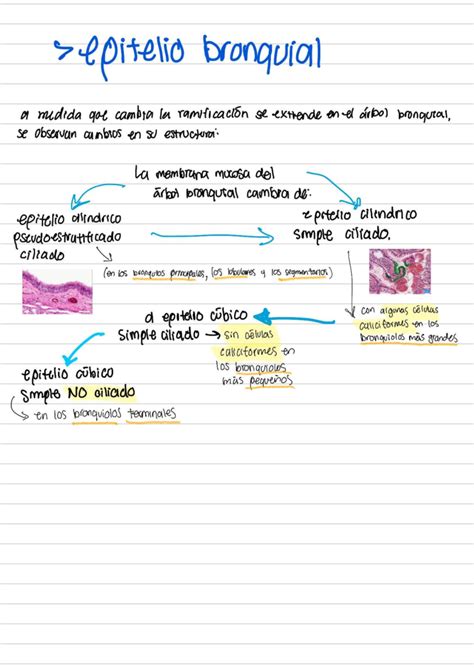 > epitelio bronquial
a medida que cambia la ramificación se extiende en el árbol bronquial,
se observan cambios en su estructura:
La membrana mucosa del
árbol bronquial cambia de:
epitelio cilíndrico
pseudoestratificado
ciliado
(en los bronquios principales, los lobulares y los segmentarios)
epitelio cilíndrico
simple ciliado.
con algunas células
caliciformes en los
bronquiolos más grandes
a epitelio cúbico
simple ciliado → sin células
caliciformes en
los bronquiolos
más pequeños
epitelio cúbico
simple NO ciliado
→ en los bronquiolos terminales